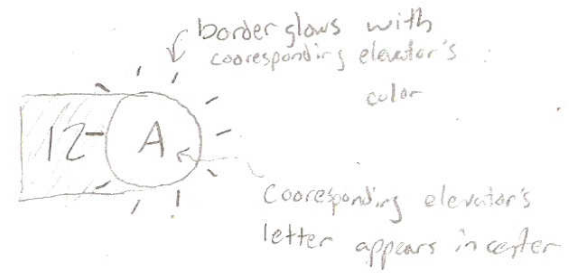 border glows with
cooresponding elevator's
color
12
A
Cooresponding elevator's
letter appears in center